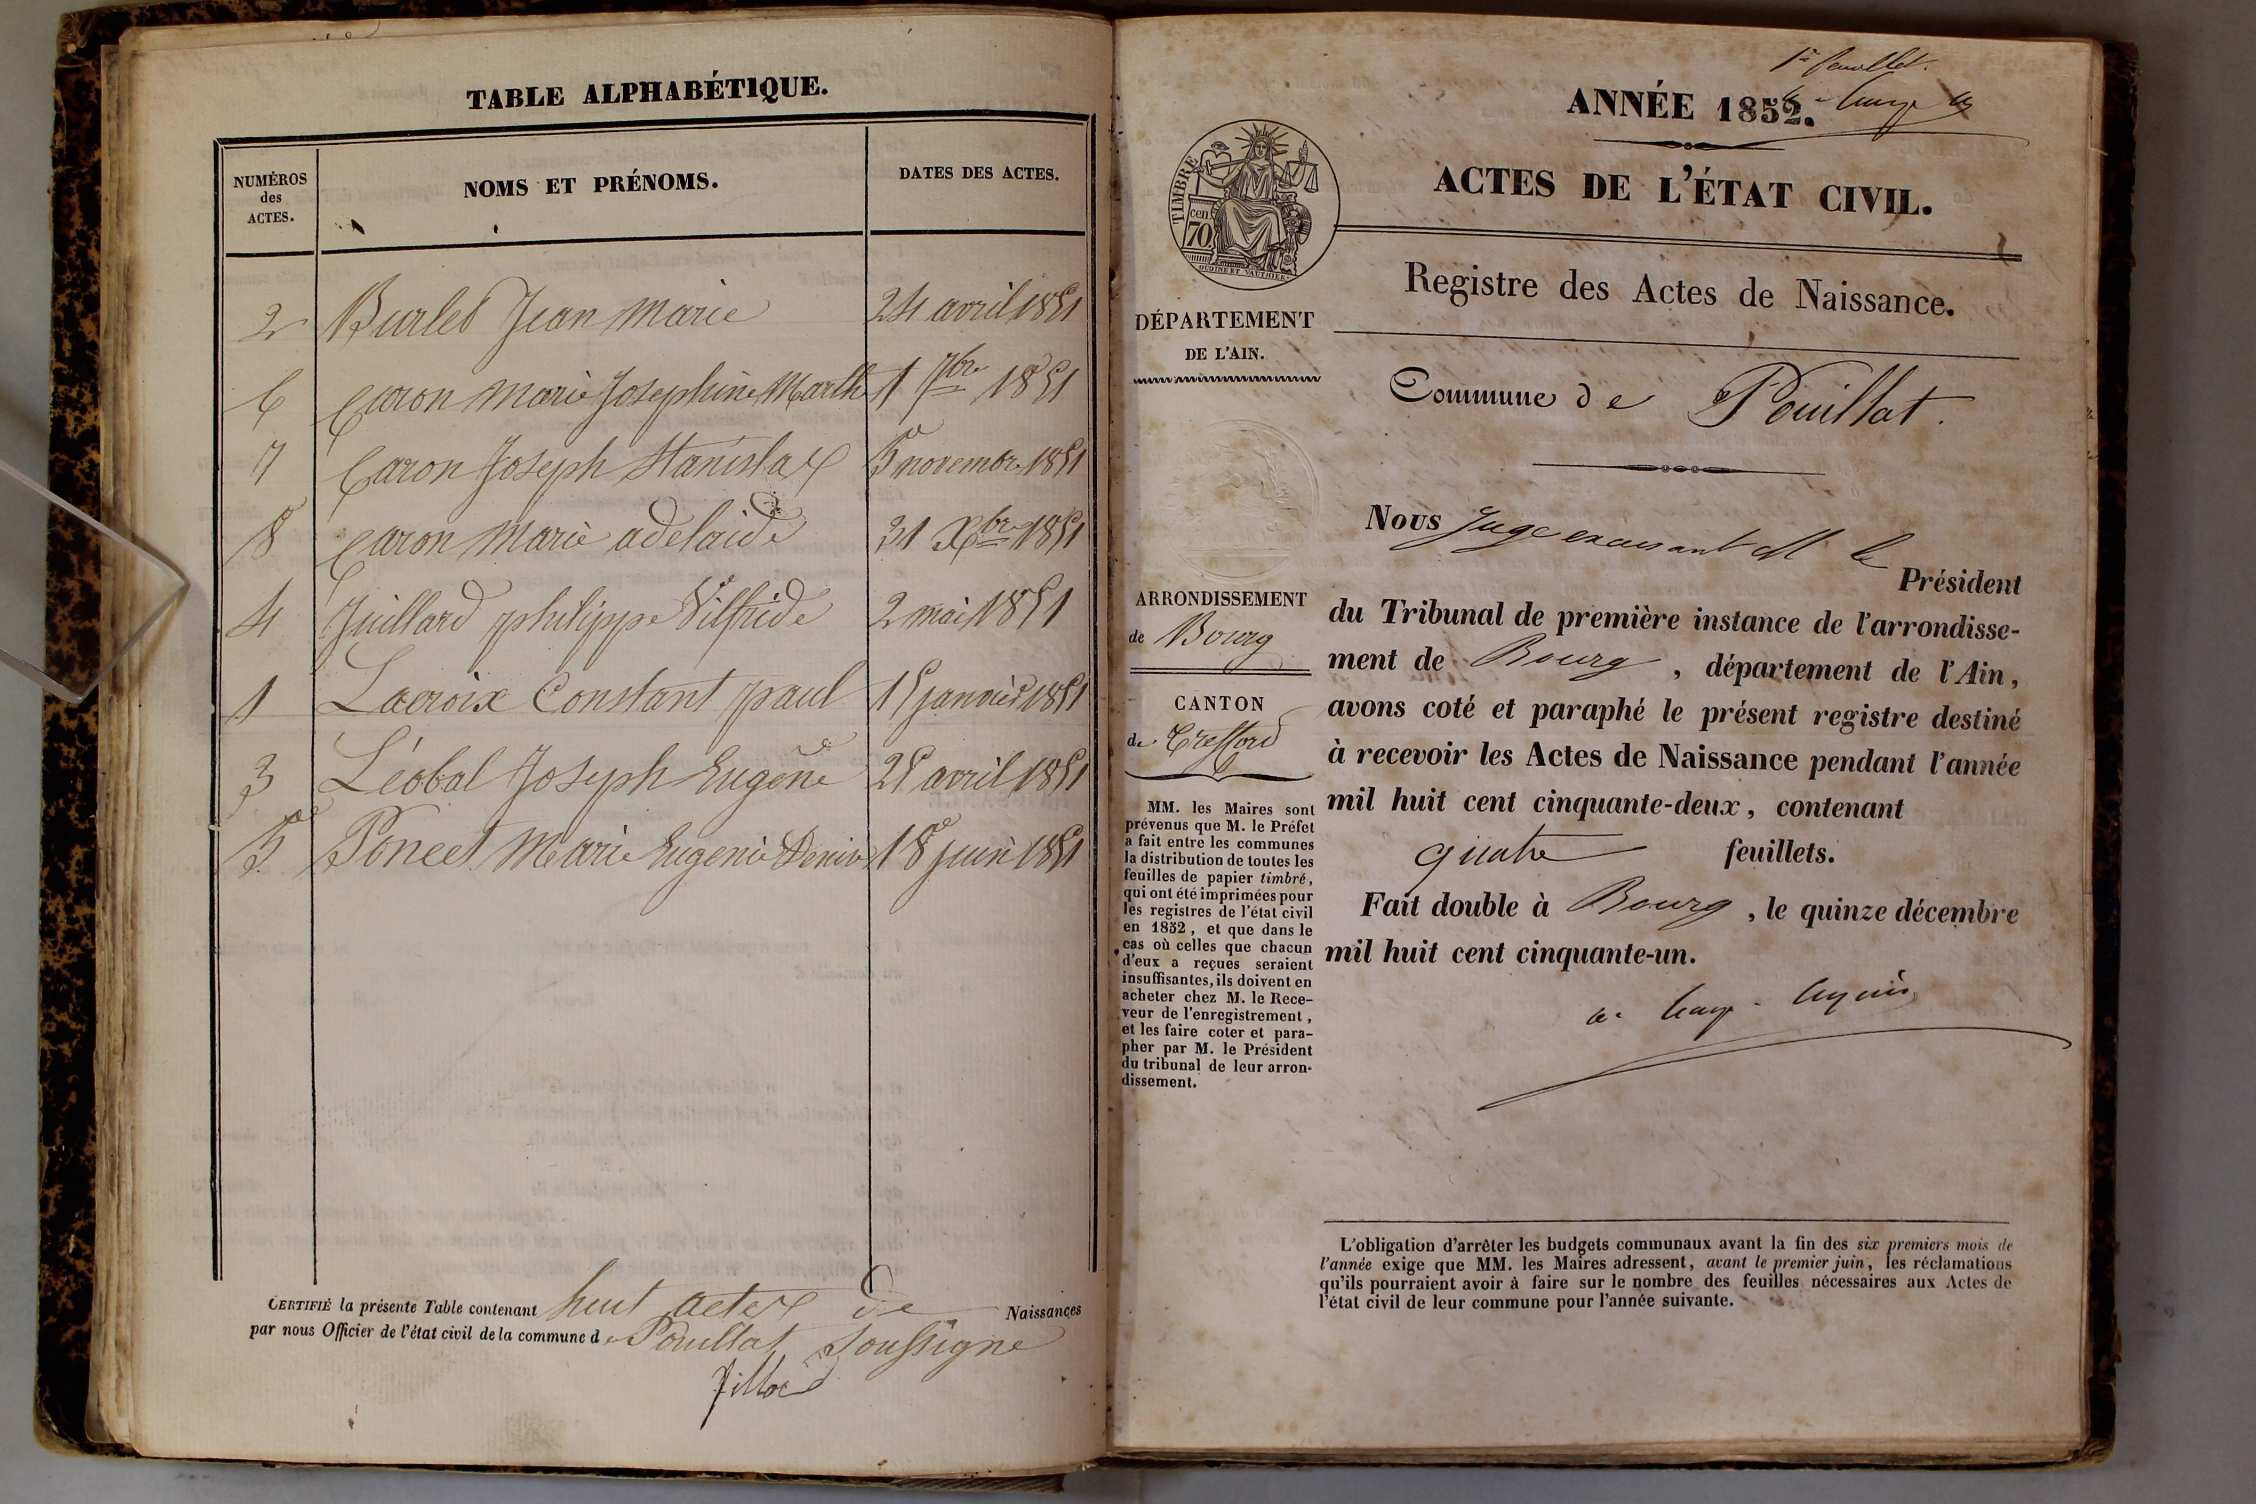 TABLE ALPHABÉTIQUE.
NUMÉROS
des
ACTES.
NOMS ET PRÉNOMS.
DATES DES ACTES.
2 Burlet Jean Marie 24 avril 1851
6 Caron Marie Josephine Marthe 1 7bre 1851
7 Caron Joseph Stanislas 5 novembre 1851
8 Caron Marie adelaide 31 Xbre 1851
4 Juillard philippe Vilfride 2 mai 1851
1 Lacroix Constant paul 15 janvier 1851
3 Léobal Joseph Eugène 25 avril 1851
5 Poncet Marie Eugenie 18 juin 1851
CERTIFIÉ la présente Table contenant huit actes de Naissances
par nous Officier de l'état civil de la commune de Pouillat Soussigné
1er feuillet.
ANNÉE 1852.
ACTES DE L'ÉTAT CIVIL.
TIMBRE
70 cen
OUDINE ET VAUTHIER
Registre des Actes de Naissance.
DÉPARTEMENT
DE L'AIN.
Commune de Pouillat.
ARRONDISSEMENT
de Bourg
CANTON
de Trefford
MM. les Maires sont
prévenus que M. le Préfet
a fait entre les communes
la distribution de toutes les
feuilles de papier timbré,
qui ont été imprimées pour
les registres de l'état civil
en 1852, et que dans le
cas où celles que chacun
d'eux a reçues seraient
insuffisantes, ils doivent en
acheter chez M. le Rece-
veur de l'enregistrement,
et les faire coter et para-
pher par M. le Président
du tribunal de leur arron-
dissement.
Nous Juge excusant M le
Président
du Tribunal de première instance de l'arrondisse-
ment de Bourg, département de l'Ain,
avons coté et paraphé le présent registre destiné
à recevoir les Actes de Naissance pendant l'année
mil huit cent cinquante-deux, contenant
quatre feuillets.
Fait double à Bourg, le quinze décembre
mil huit cent cinquante-un.
L'obligation d'arrêter les budgets communaux avant la fin des six premiers mois de
l'année exige que MM. les Maires adressent, avant le premier juin, les réclamations
qu'ils pourraient avoir à faire sur le nombre des feuilles nécessaires aux Actes de
l'état civil de leur commune pour l'année suivante.